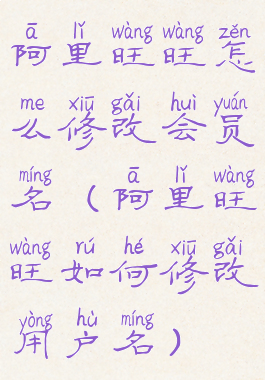 ā lǐ wàng wàng zěn
阿里旺旺怎
me xiū gǎi huì yuán
么修改会员
míng ā lǐ wàng
名（阿里旺
wàng rú hé xiū gǎi
旺如何修改
yòng hù míng
用户名）